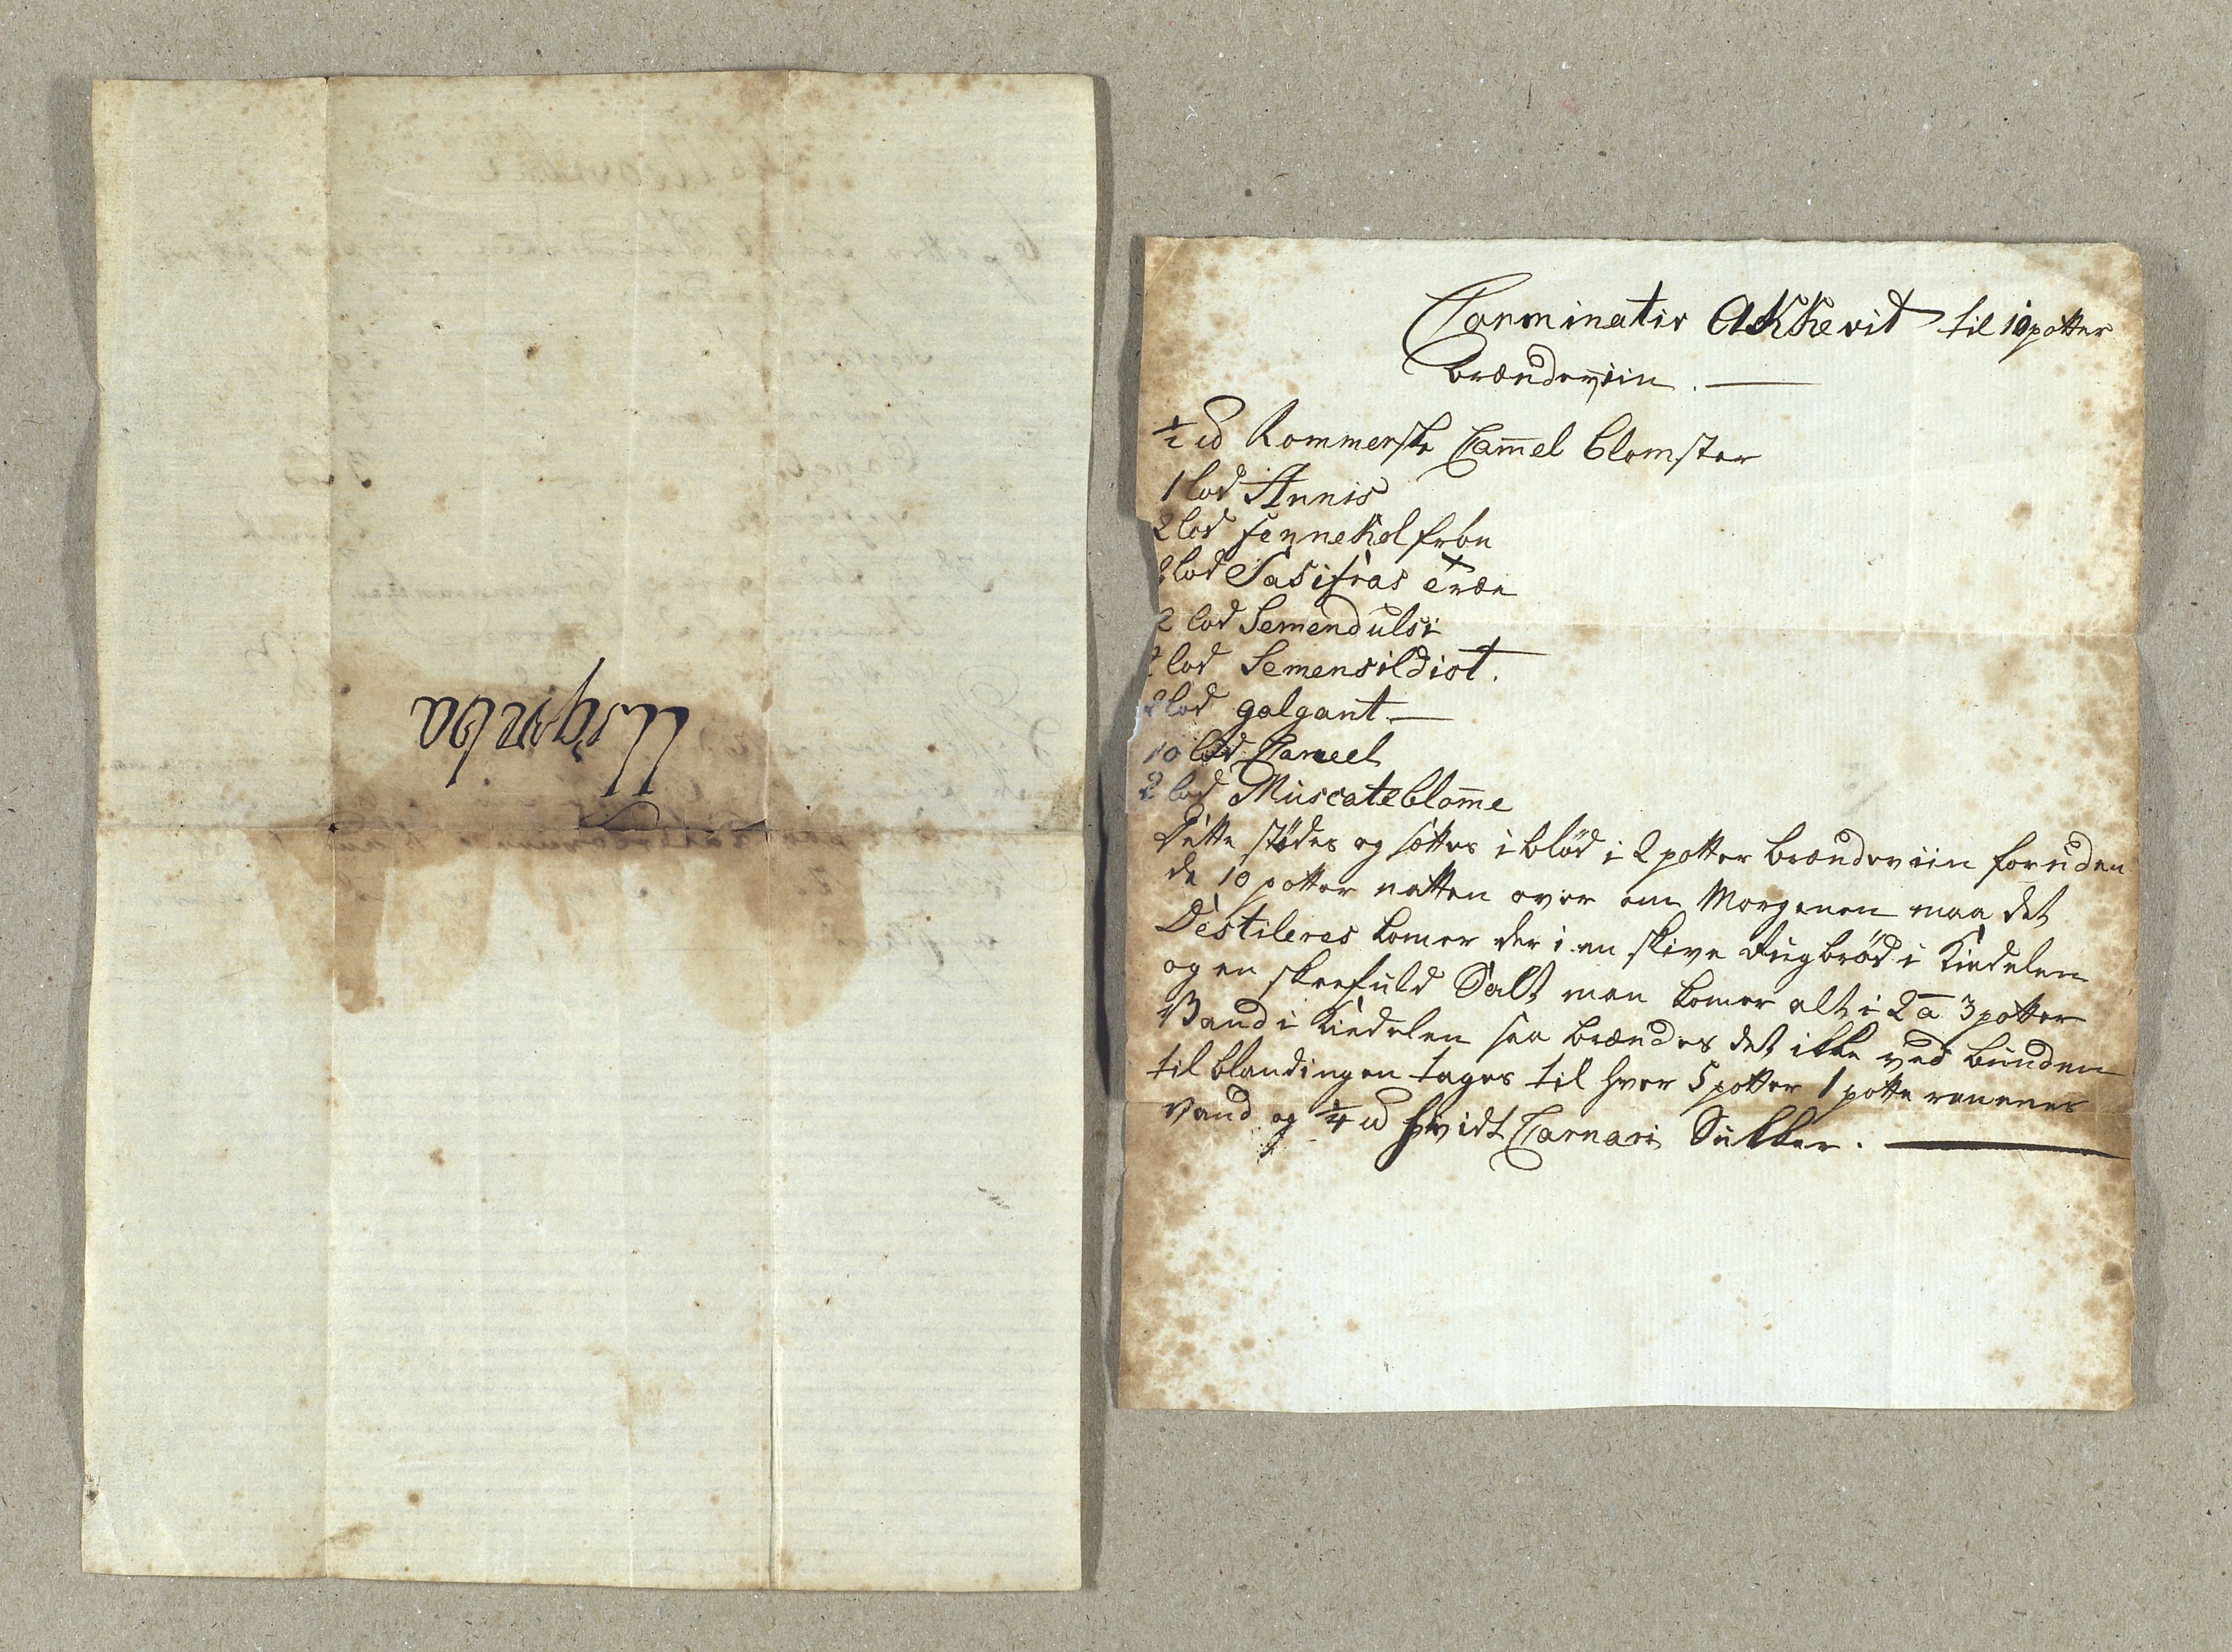 Usqveba
Carminativ AKKevit til 10 potter
brændeviin. —
½ ℔ Rommerske Cam̄el blomster
1 lod Annis
2 lod fennekel frøe
2 lod Sasifras træe
2 lod Semendulsi
2 lod Semensildiot.
2 lod galgant —
10 lod Caneel
2 lod Muscateblom̄e
Dette stødes og sættes i blød i 2 potter brændeviin foruden
de 10 potter natten over om Morgenen maa det
Destileres komer der i en skive Rugbrød i Kiedelen
og en skeefuld Salt man komer alt i 2 a 3 potter
Vand i Kiedelen saa brændes det ikke ved bunden
til blandingen tages til hver 5 potter 1 potte
vand og ¼ ℔ hvidt Carnari Sukker. —